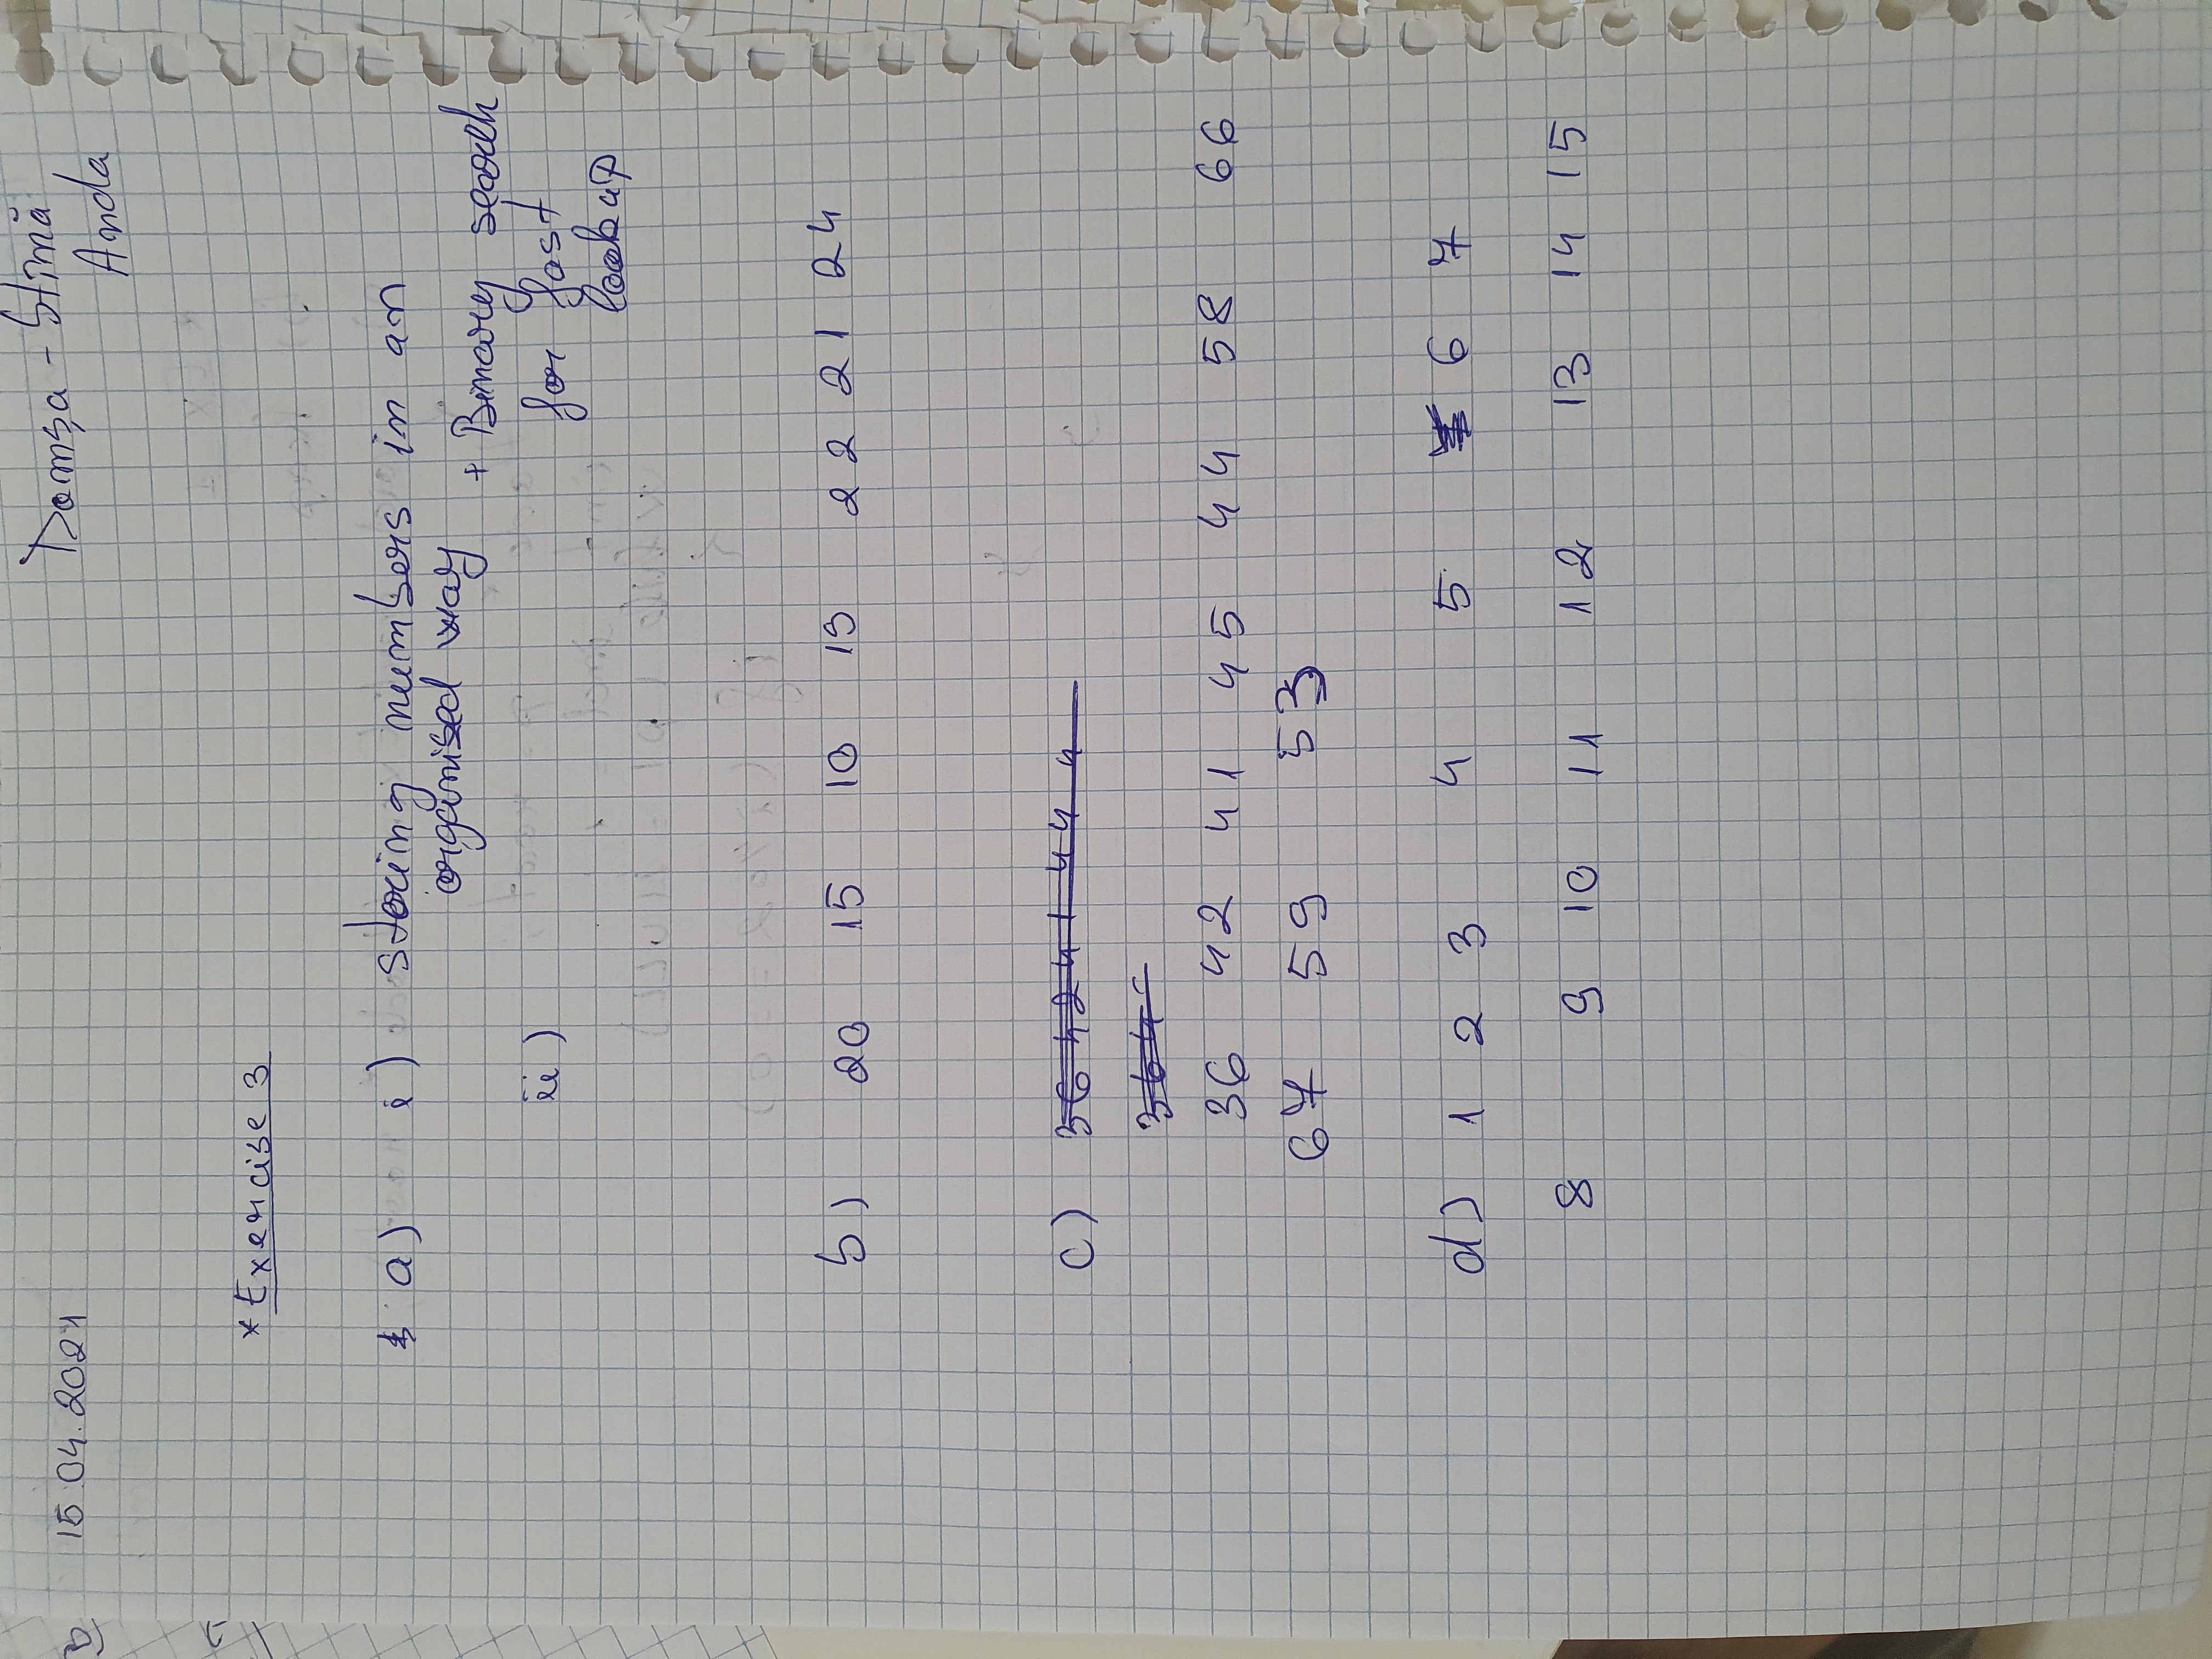 15.04.2021
Domșa - Stînă
Anda
* Exercise 3
a) i) storing numbers in an
organised way
+ Binary search
ii) for fast
lookup
b) 20 15 10 19 22 21 24
c) 36 42 41 44 4
364
36 42 41 45 44 58 66
67 59 53
d) 1 2 3 4 5 6 7
8 9 10 11 12 13 14 15